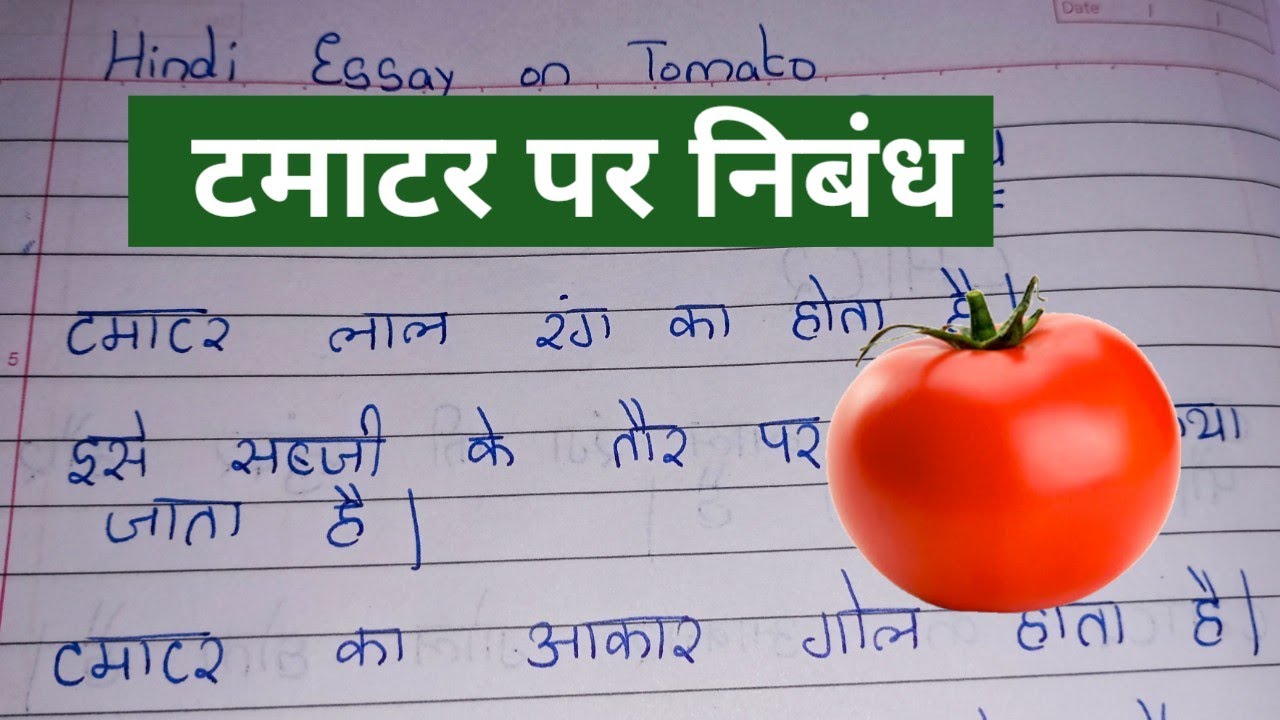 Date
Hindi Essay on Tomato
टमाटर पर निबंध
टमाटर लाल रंग का होता है।
5
इसे सब्जी के तौर पर
जाता है।
टमाटर का आकार गोल होता है।